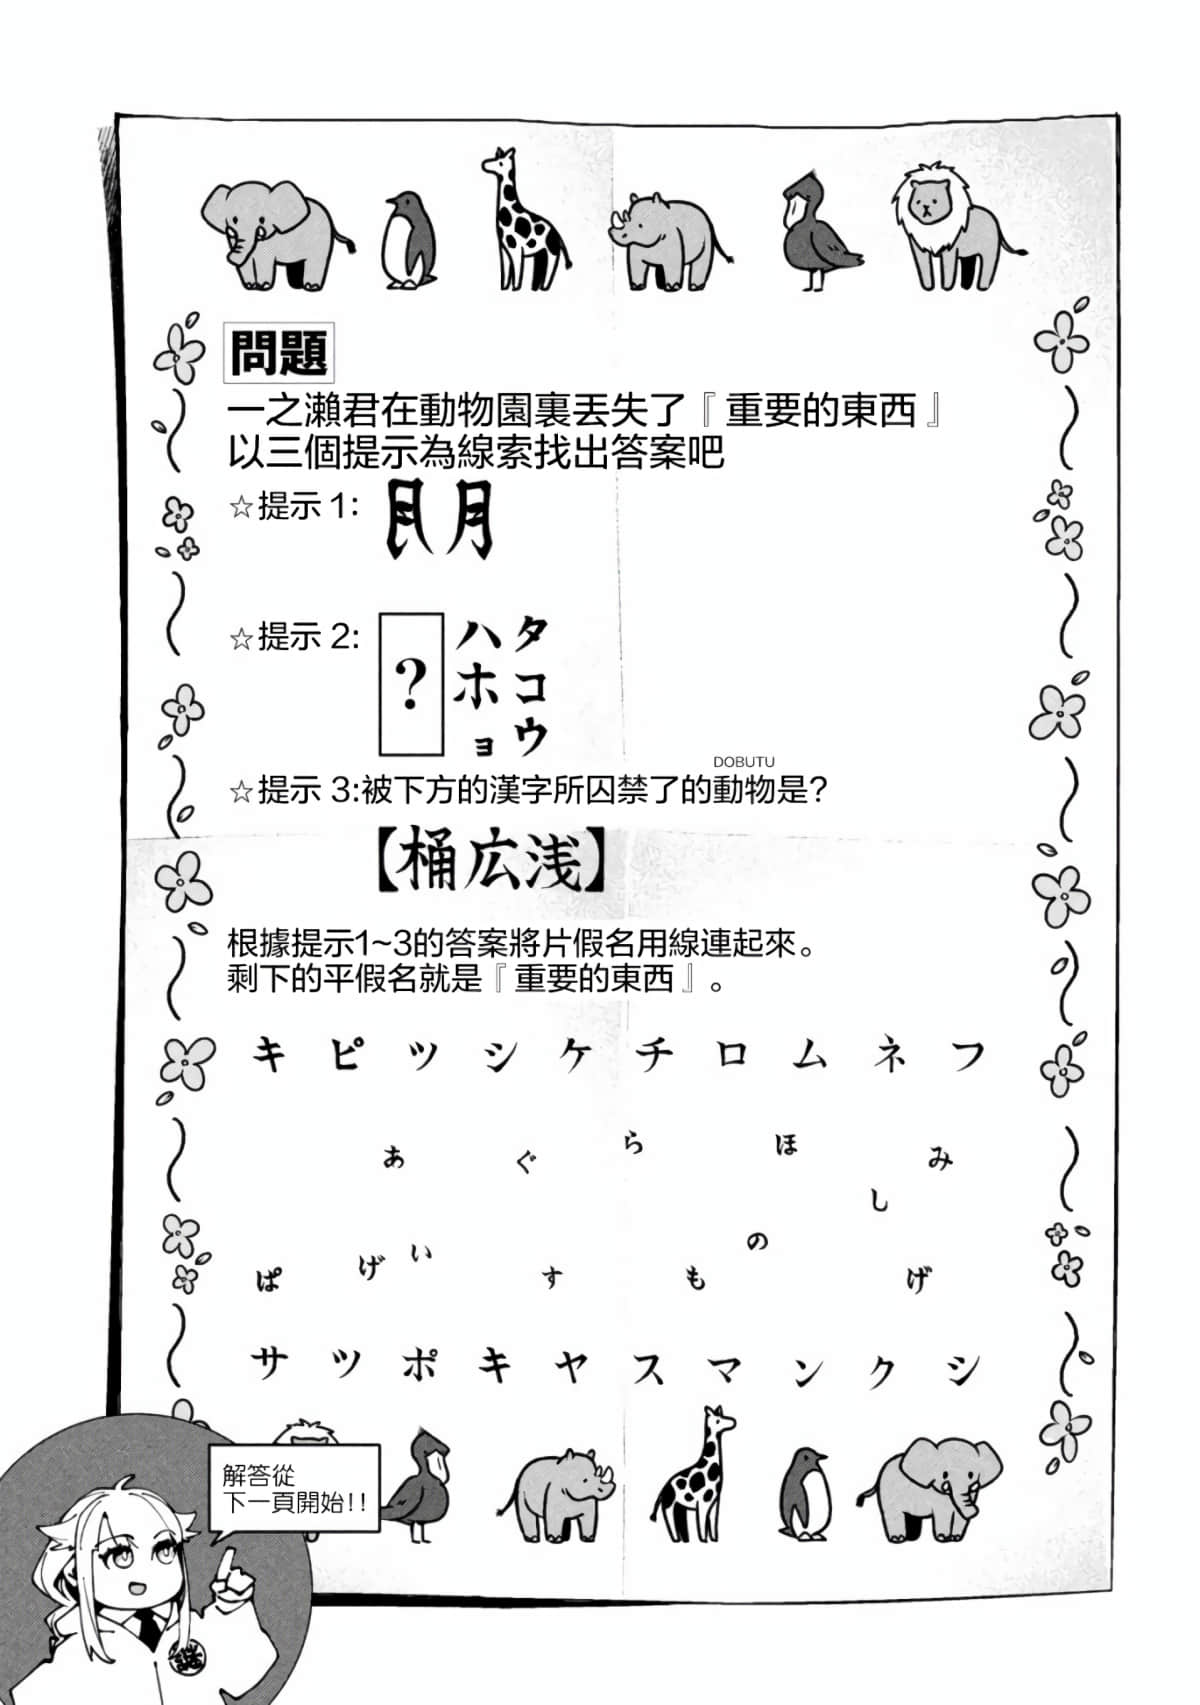 問題
一之瀨君在動物園裏丟失了『重要的東西』
以三個提示為線索找出答案吧
☆提示 1:
月
☆提示 2:
タコウ
ハホョ
?
DOBUTU
☆提示 3:被下方的漢字所囚禁了的動物是?
【桶広浅】
根據提示1~3的答案將片假名用線連起來。
剩下的平假名就是『重要的東西』。
キ ピ ツ シ ケ チ ロ ム ネ フ
あ ぐ ら ほ み
し
ぱ げ い す も の げ
サ ツ ポ キ ヤ ス マ ン ク シ
解答從
下一頁開始!!
謎